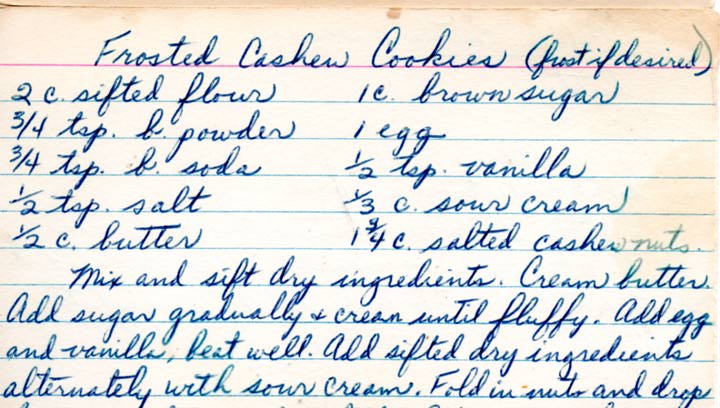 Frosted Cashew Cookies (frost if desired)
2 c. sifted flour 1 c. brown sugar
3/4 tsp. b. powder 1 egg
3/4 tsp. b. soda 1/2 tsp. vanilla
1/2 tsp. salt 1/3 c. sour cream
1/2 c. butter 1 3/4 c. salted cashew nuts.
Mix and sift dry ingredients. Cream butter.
Add sugar gradually & cream until fluffy. Add egg
and vanilla, beat well. Add sifted dry ingredients
alternately with sour cream. Fold in nuts and drop